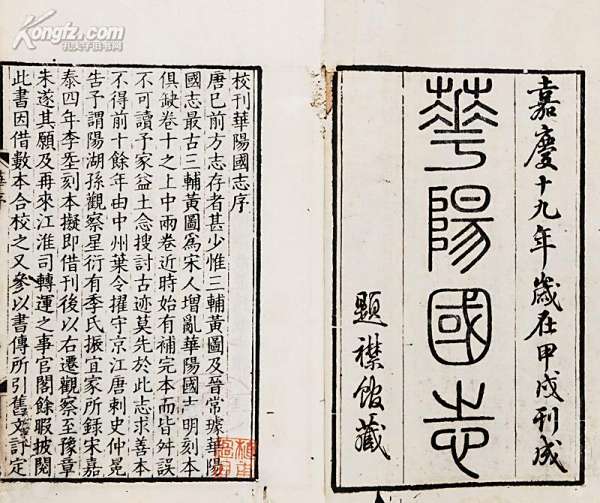 Kongfz.com
孔夫子旧书网
嘉慶十九年歲在甲戌刊成
華陽國志
題襟館藏
校刊華陽國志序
唐已前方志存者甚少惟三輔黃圖及晉常璩華陽
國志最古三輔黃圖爲宋人增亂華陽國志明刻本
俱缺卷十之上中兩卷近時始有補完本而皆舛誤
不可讀予家益土念搜討古迹莫先於此志求善本
不得前十餘年由中州葉令擢守京江唐刺史仲冕
告予謂陽湖孫觀察星衍有季氏振宜家所錄宋嘉
泰四年李刻本擬即借刊後以右遷觀察至豫章
未遂其願及再來江淮司轉運之事官閣餘暇披閱
此書因借數本合校之又參以書傳所引舊文評定
序